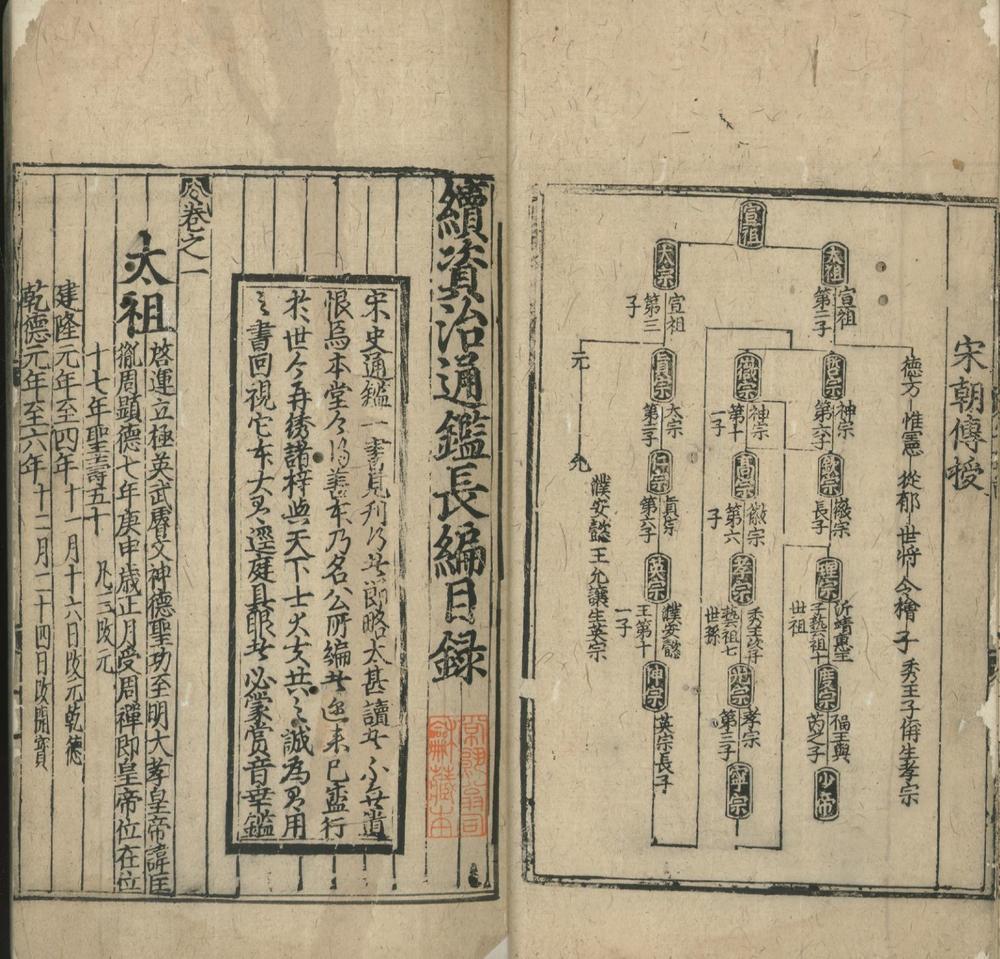 宋朝傳授
宣祖
太祖
宣祖
第二子
德方 惟憲 從郁 世將 令檜 子 秀王子偁生孝宗
太宗
宣祖
第三
子
哲宗
神宗
第六子
欽宗
徽宗
長子
理宗
沂靖惠王
子藝祖十
世祖
度宗
福王與
芮之子
少帝
徽宗
神宗
第十
一子
高宗
徽宗
第六
子
孝宗
藝祖七
世孫
光宗
孝宗
第三子
寧宗
真宗
太宗
第三子
仁宗
真宗
第六子
英宗
濮安懿
王第十
一子
神宗
英宗長子
元
允
濮安懿王允讓生英宗
續資治通鑑長編目録
宋史通鑑一書見刋行者節略太甚讀者不無遺
恨焉本堂今得善本乃名公所編者迺未已盛行
於世今再綉諸梓與天下士大夫共之誠為有用
之書回視它本大有逕庭具眼者必蒙賞音幸鑑
卷之一
太祖
啓運立極英武睿文神德聖功至明大孝皇帝諱匡
胤周顯德七年庚申歲正月受周禪即皇帝位在位
十七年聖壽五十 凡三改元
建隆元年至四年十一月十六日改元乾德
乾德元年至六年十二月二十四日改開寳